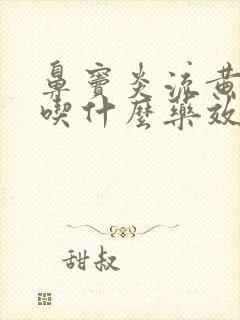 鼻窦炎流黄
喫什麼藥效
甜叔